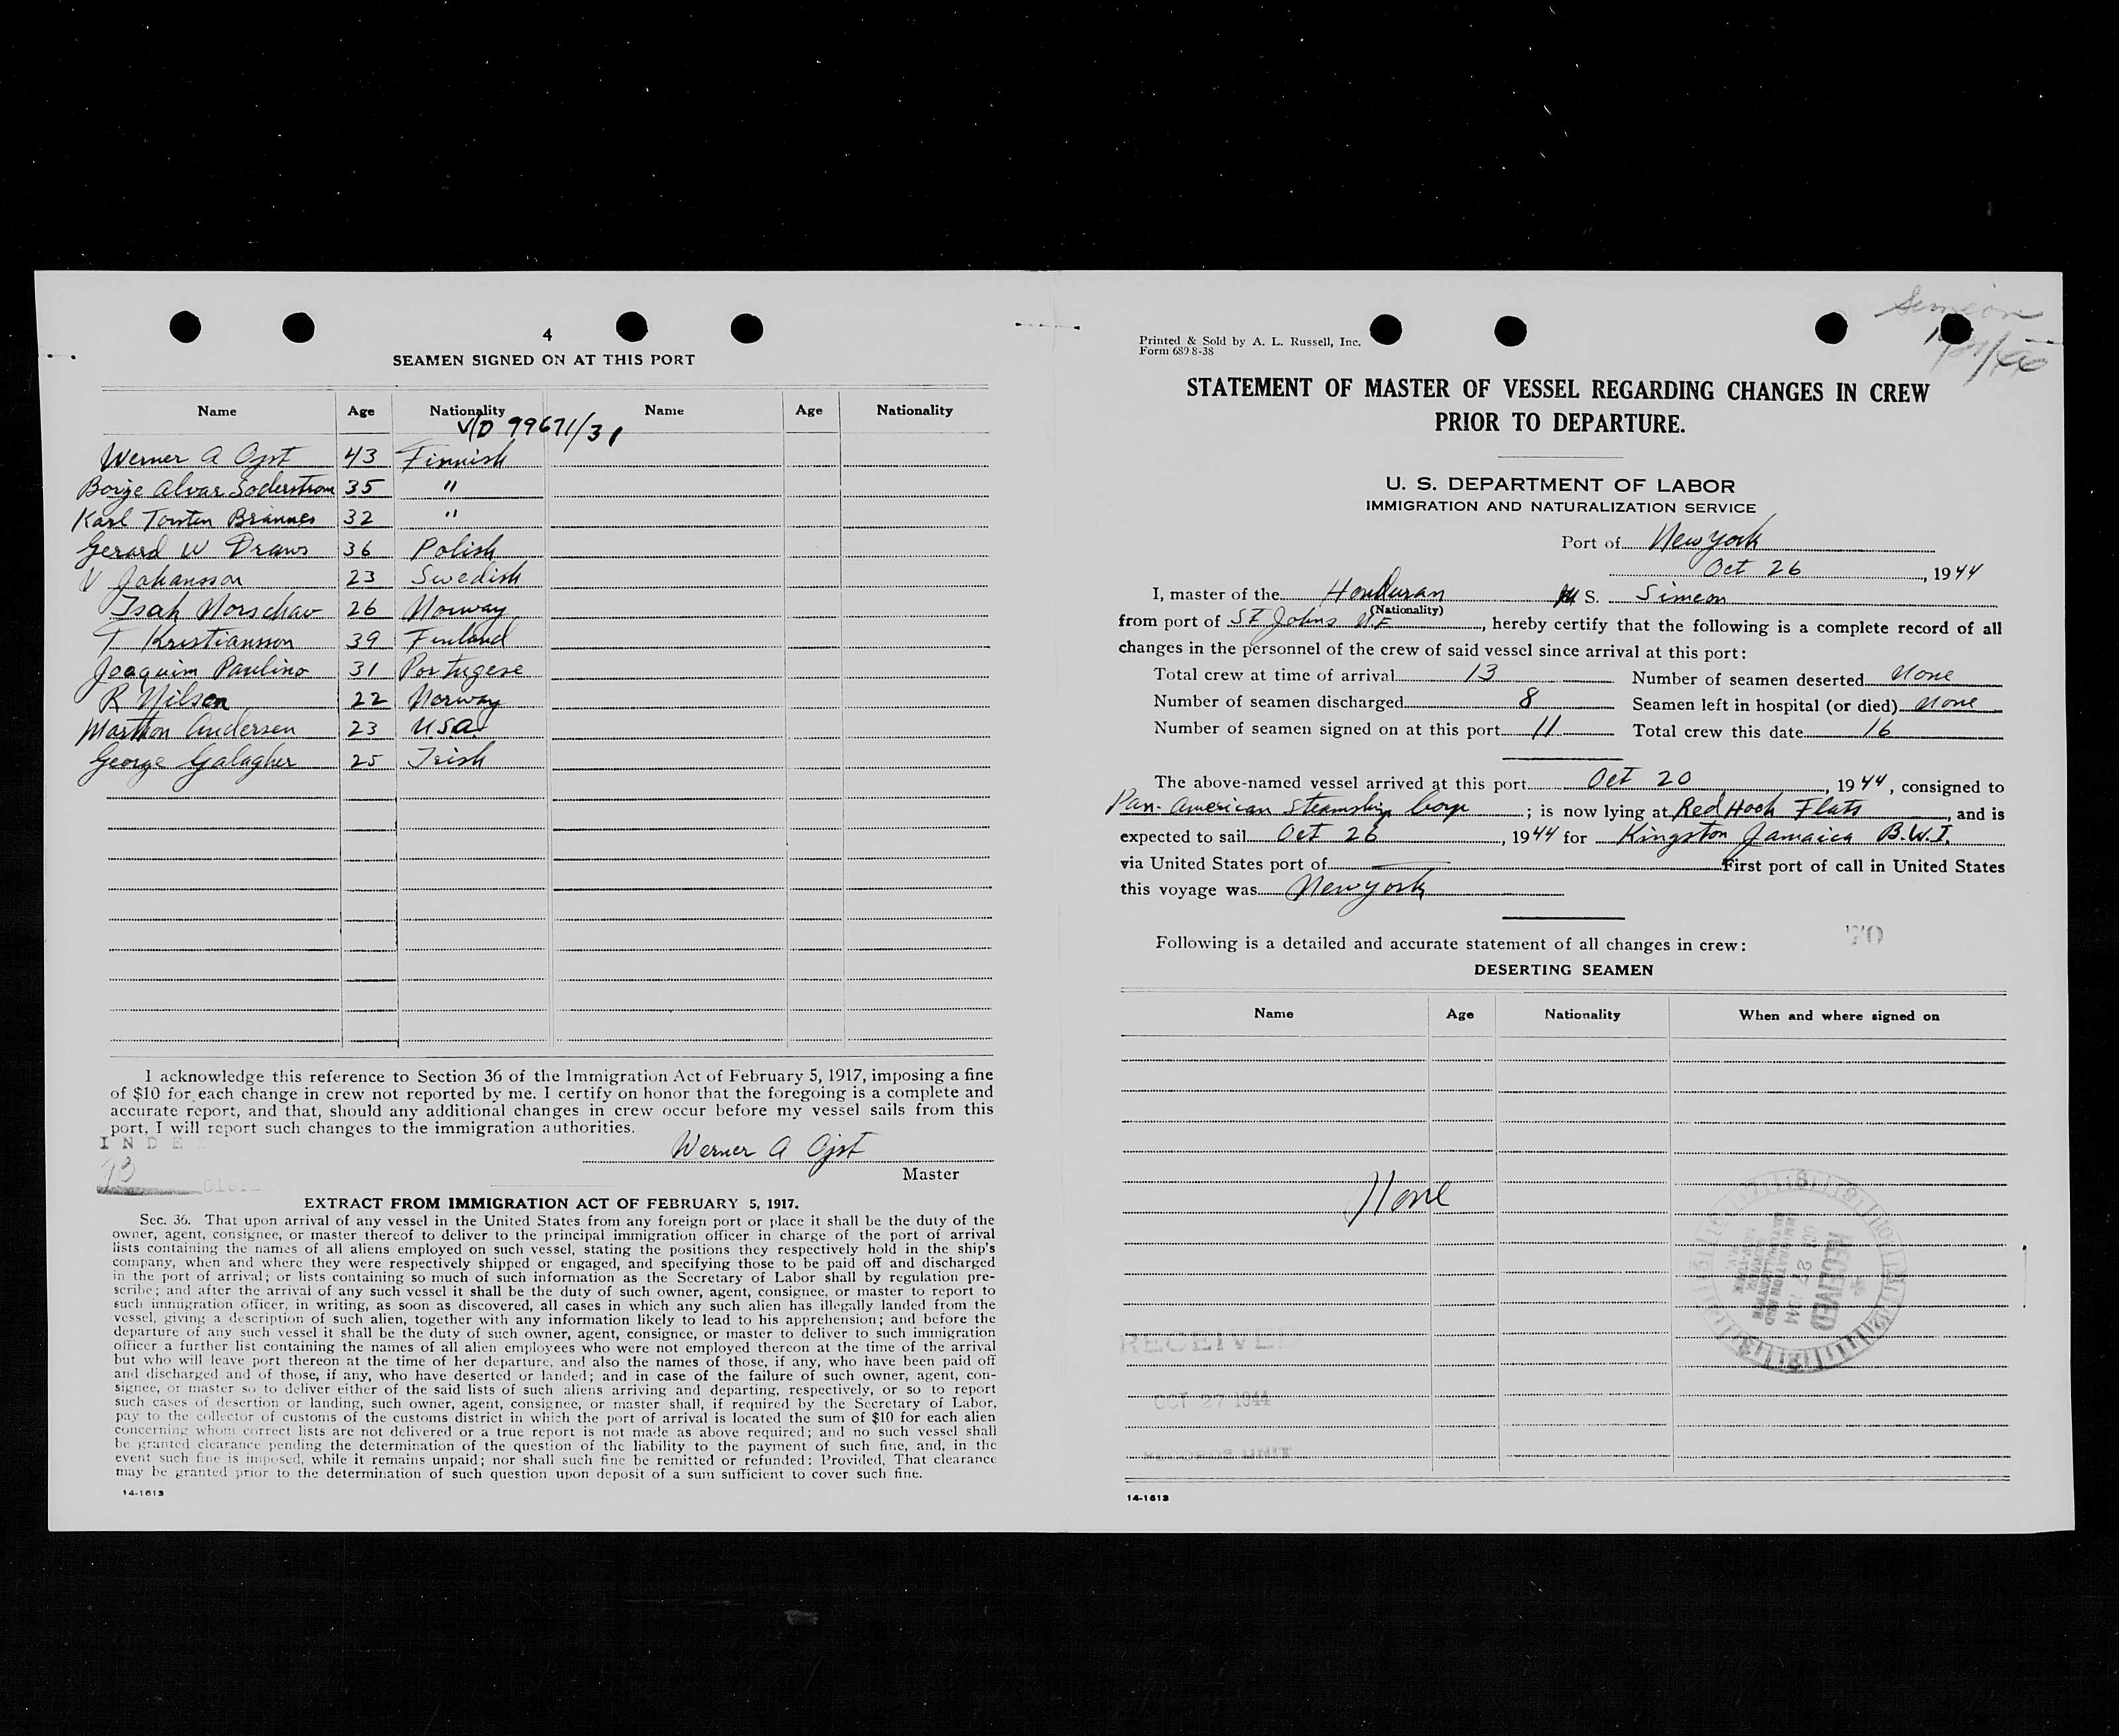 4
SEAMEN SIGNED ON AT THIS PORT
Name Age Nationality Name Age Nationality
V/D 99671/31
Werner A Ojst 43 Finnish
Borje Alvar Soderstrom 35 "
Karl Torsten Brannes 32 "
Gerard W Draws 36 Polish
V Johansson 23 Swedish
Isak Norschav 26 Norway
T Kristiansson 39 Finland
Joaquim Paulino 31 Portugese
R Nilsen 22 Norway
Martton Andersen 23 USA
George Galagher 25 Irish
I acknowledge this reference to Section 36 of the Immigration Act of February 5, 1917, imposing a fine
of $10 for each change in crew not reported by me. I certify on honor that the foregoing is a complete and
accurate report, and that, should any additional changes in crew occur before my vessel sails from this
port, I will report such changes to the immigration authorities.
INDE
Werner A Ojst
Master
EXTRACT FROM IMMIGRATION ACT OF FEBRUARY 5, 1917.
Sec. 36. That upon arrival of any vessel in the United States from any foreign port or place it shall be the duty of the
owner, agent, consignee, or master thereof to deliver to the principal immigration officer in charge of the port of arrival
lists containing the names of all aliens employed on such vessel, stating the positions they respectively hold in the ship's
company, when and where they were respectively shipped or engaged, and specifying those to be paid off and discharged
in the port of arrival; or lists containing so much of such information as the Secretary of Labor shall by regulation pre-
scribe; and after the arrival of any such vessel it shall be the duty of such owner, agent, consignee, or master to report to
such immigration officer, in writing, as soon as discovered, all cases in which any such alien has illegally landed from the
vessel, giving a description of such alien, together with any information likely to lead to his apprehension; and before the
departure of any such vessel it shall be the duty of such owner, agent, consignee, or master to deliver to such immigration
officer a further list containing the names of all alien employees who were not employed thereon at the time of the arrival
but who will leave port thereon at the time of her departure, and also the names of those, if any, who have been paid off
and discharged and of those, if any, who have deserted or landed; and in case of the failure of such owner, agent, con-
signee, or master so to deliver either of the said lists of such aliens arriving and departing, respectively, or so to report
such cases of desertion or landing, such owner, agent, consignee, or master shall, if required by the Secretary of Labor,
pay to the collector of customs of the customs district in which the port of arrival is located the sum of $10 for each alien
concerning whom correct lists are not delivered or a true report is not made as above required; and no such vessel shall
be granted clearance pending the determination of the question of the liability to the payment of such fine, and, in the
event such fine is imposed, while it remains unpaid; nor shall such fine be remitted or refunded: Provided, That clearance
may be granted prior to the determination of such question upon deposit of a sum sufficient to cover such fine.
14-1613
Simeon
Printed & Sold by A. L. Russell, Inc.
Form 689 8-38
STATEMENT OF MASTER OF VESSEL REGARDING CHANGES IN CREW
PRIOR TO DEPARTURE.
U. S. DEPARTMENT OF LABOR
IMMIGRATION AND NATURALIZATION SERVICE
Port of New York
Oct 26, 1944
I, master of the Honduran M S. Simeon
(Nationality)
from port of St Johns NF, hereby certify that the following is a complete record of all
changes in the personnel of the crew of said vessel since arrival at this port:
Total crew at time of arrival 13 Number of seamen deserted None
Number of seamen discharged 8 Seamen left in hospital (or died) None
Number of seamen signed on at this port 11 Total crew this date 16
The above-named vessel arrived at this port Oct 20, 1944, consigned to
Pan-American Steamship Corp; is now lying at Red Hook Flats, and is
expected to sail Oct 26, 1944 for Kingston Jamaica B.W.I.
via United States port of — First port of call in United States
this voyage was New York
70
Following is a detailed and accurate statement of all changes in crew:
DESERTING SEAMEN
Name Age Nationality When and where signed on
None
RECEIVED
OCT 27 1944
IMMIGRATION AND
NATURALIZATION
SERVICE
NEW YORK
RECEIVED
OCT 27 1944
RECORDS UNIT
14-1613